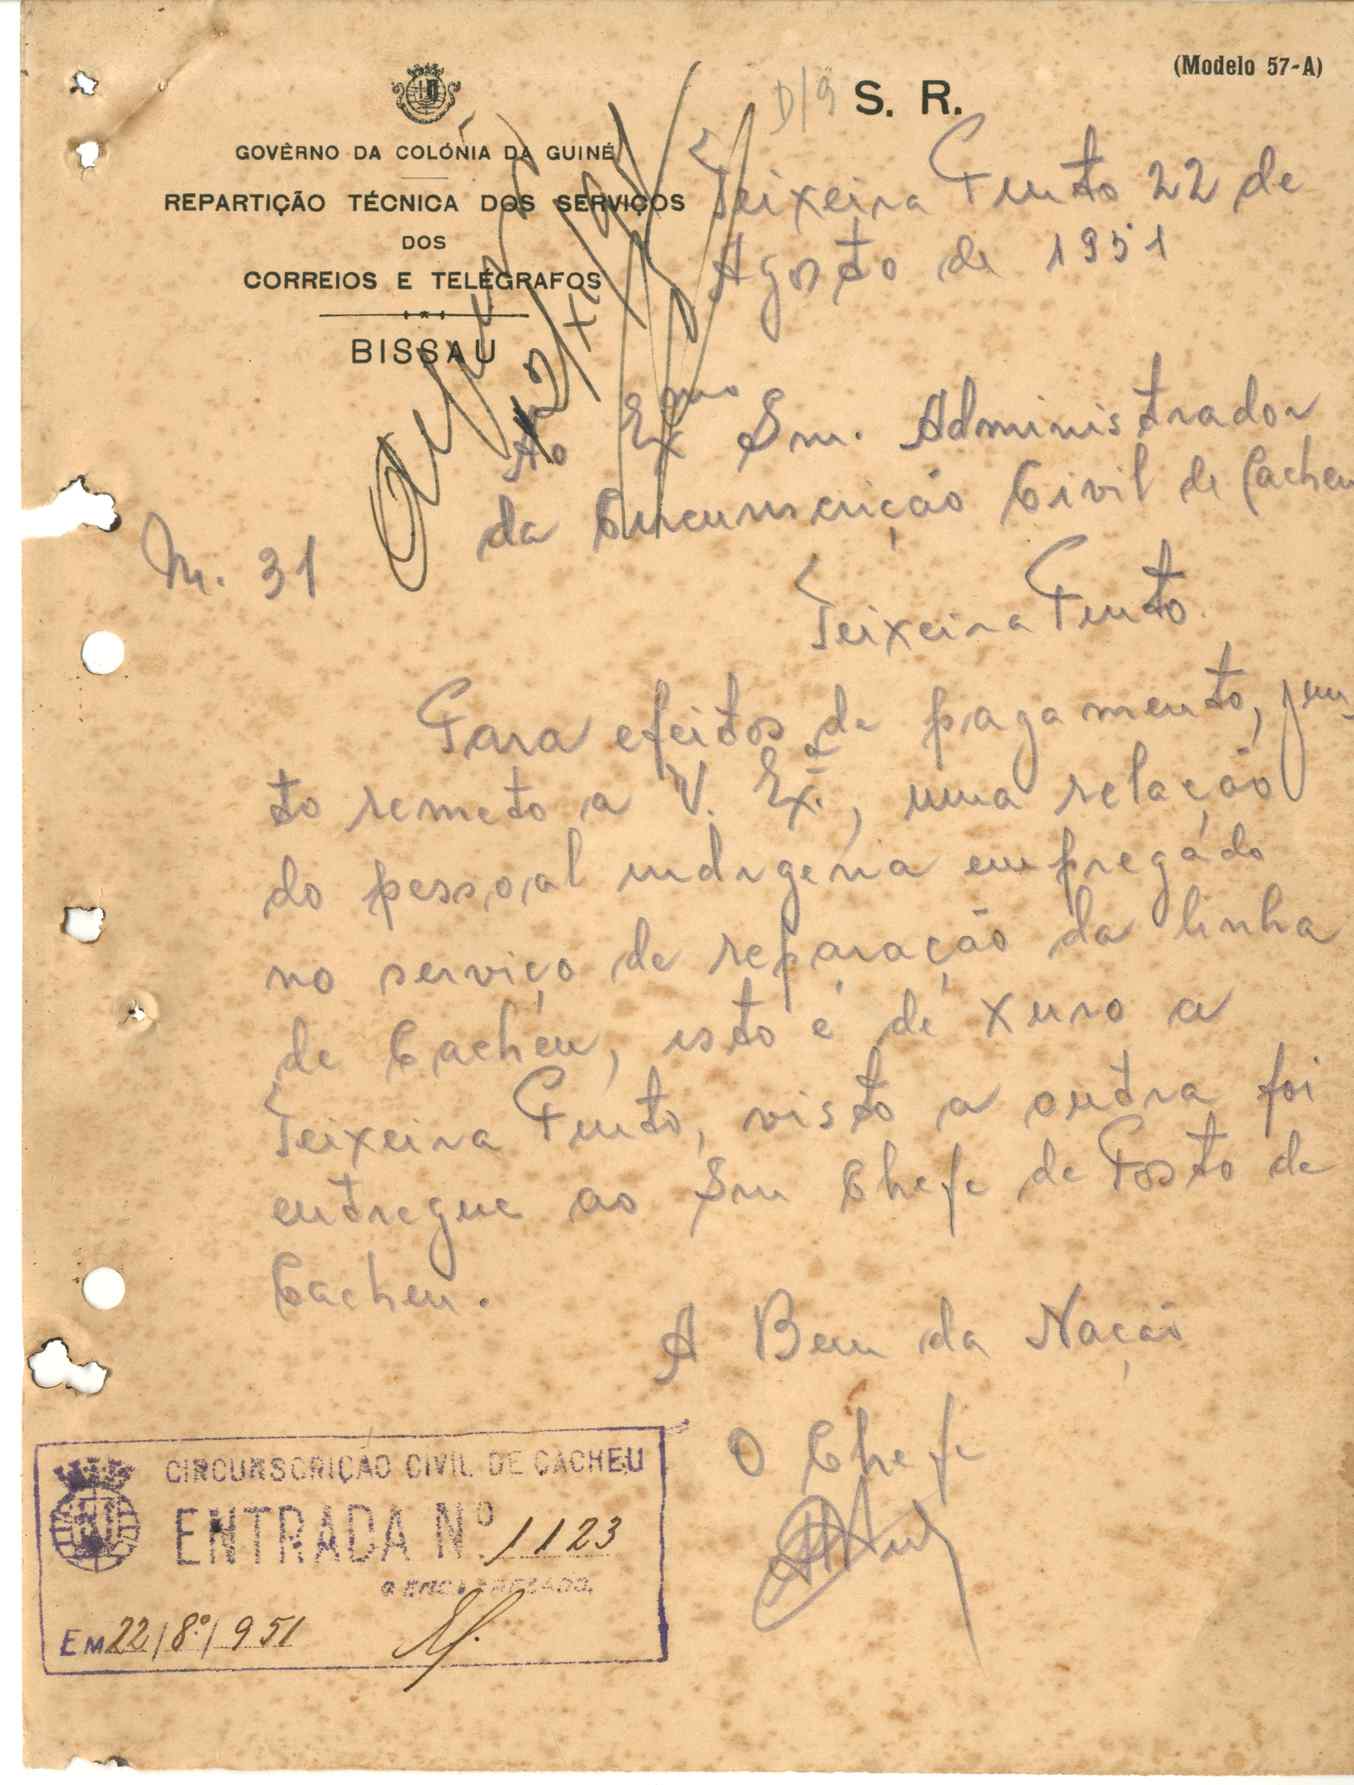 (Modelo 57-A)
D/9 S. R.
GOVÊRNO DA COLÓNIA DA GUINÉ
REPARTIÇÃO TÉCNICA DOS SERVIÇOS
DOS
CORREIOS E TELÉGRAFOS
BISSAU
Teixeira Pinto 22 de
Agosto de 1951
Ao Exmo Snr. Administrador
da Circunscrição Civil de Cacheu
N. 31
Teixeira Pinto
Para efeitos de pagamento, jun-
to remeto a V. Exª., uma relação
do pessoal indigena empregádo
no serviço de reparação da linha
de Cachéu, isto é de Xuro a
Teixeira Pinto, visto a outra foi
entregue ao Snr Chefe de Posto de
Cacheu.
A Bem da Nação
O Chefe
CIRCUNSCRIÇÃO CIVIL DE CACHEU
ENTRADA Nº 1123
O ENCARREGADO,
EM 22/8º/951